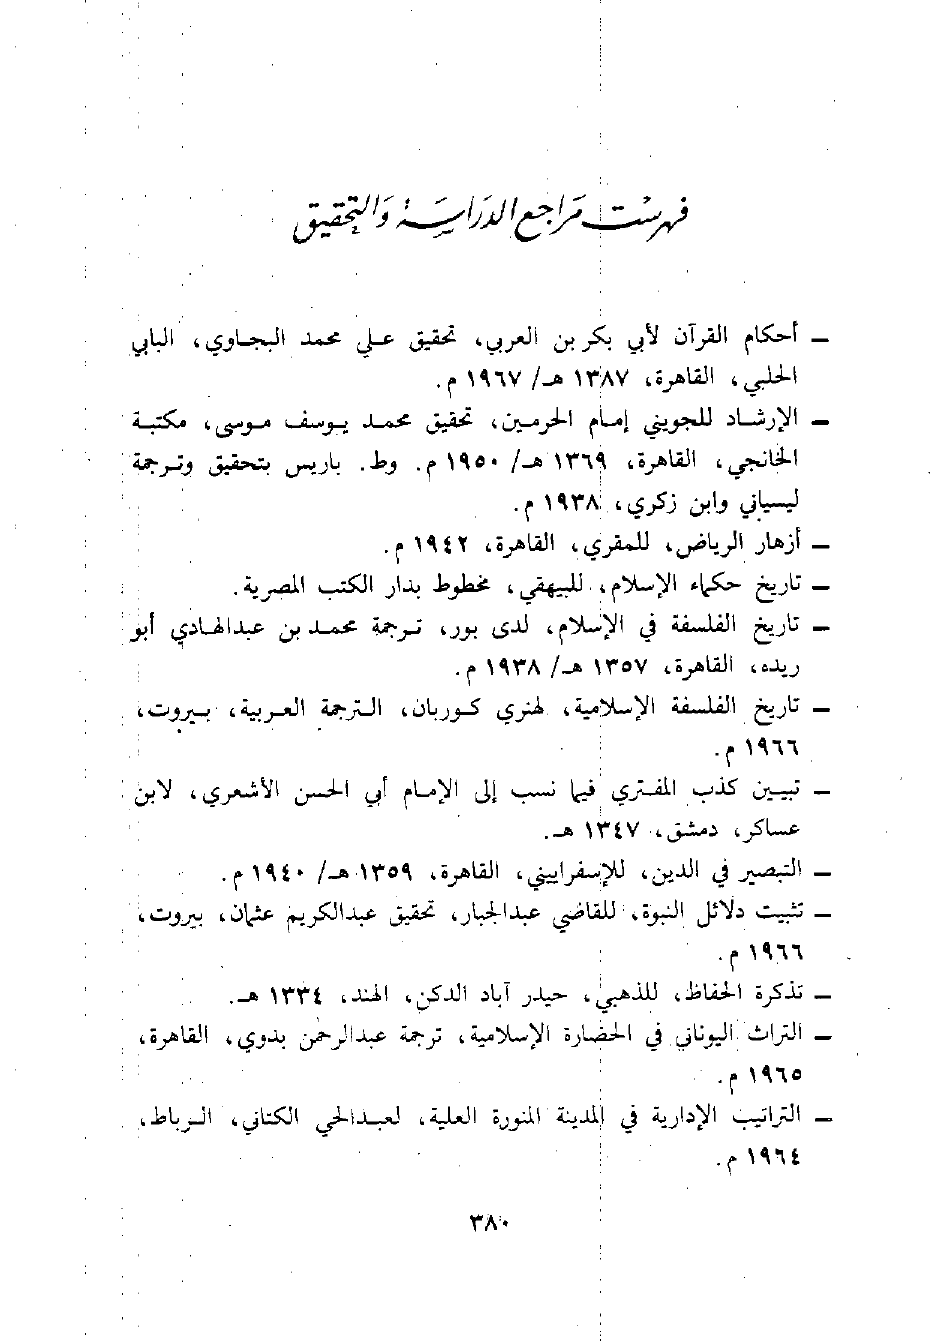 فهرست مراجع الدراسة والتحقيق
ــ أحكام القرآن لأبي بكر بن العربي، تحقيق علي محمد البجاوي، البابي
الحلبي، القاهرة، ١٣٨٧ هـ/ ١٩٦٧ م.
ــ الإرشاد للجويني إمام الحرمين، تحقيق محمد يوسف موسى، مكتبة
الخانجي، القاهرة، ١٣٦٩ هـ/ ١٩٥٠ م. وط. باريس بتحقيق وترجمة
ليسياني وابن زكري، ١٩٣٨ م.
ــ أزهار الرياض، للمقري، القاهرة، ١٩٤٢ م.
ــ تاريخ حكماء الإسلام، للبيهقي، مخطوط بدار الكتب المصرية.
ــ تاريخ الفلسفة في الإسلام، لدى بور، ترجمة محمد بن عبدالهادي أبو
ريده، القاهرة، ١٣٥٧ هـ/ ١٩٣٨ م.
ــ تاريخ الفلسفة الإسلامية، لهنري كوربان، الترجمة العربية، بيروت،
١٩٦٦ م.
ــ تبيين كذب المفتري فيما نسب إلى الإمام أبي الحسن الأشعري، لابن
عساكر، دمشق، ١٣٤٧ هـ.
ــ التبصير في الدين، للإسفراييني، القاهرة، ١٣٥٩ هـ/ ١٩٤٠ م.
ــ تثبيت دلائل النبوة، للقاضي عبدالجبار، تحقيق عبدالكريم عثمان، بيروت،
١٩٦٦ م.
ــ تذكرة الحفاظ، للذهبي، حيدر آباد الدكن، الهند، ١٣٣٤ هـ.
ــ التراث اليوناني في الحضارة الإسلامية، ترجمة عبدالرحمن بدوي، القاهرة،
١٩٦٥ م.
ــ التراتيب الإدارية في المدينة المنورة العلية، لعبدالحي الكتاني، الرباط،
١٩٦٤ م.
٣٨٠